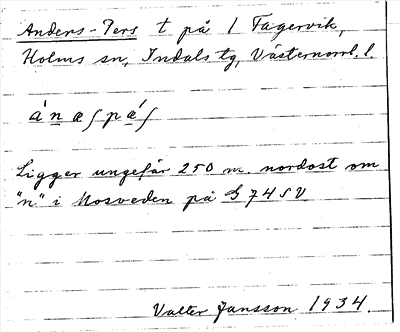 Anders-Pers t på 1 Tagervik,
Holms sn, Indals tg, Västernorrl. l.
ánaʃpáʃ
Ligger ungefär 250 m. nordost om
"n" i Mosveden på G 74 SV
Valter Jansson 1934.